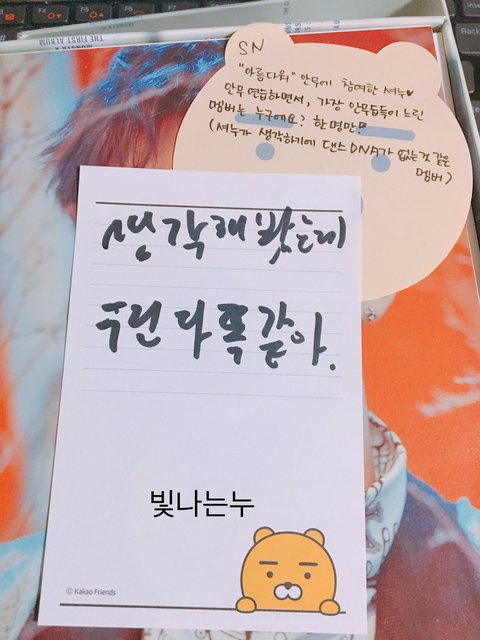 THE FIRST ALBUM
SN
"아름다워" 안무에 참여한 셔누♥
안무 연습하면서, 가장 안무습득이 느린
멤버는 누구에요? 한 명만!!
(셔누가 생각하기에 댄스 DNA가 없는것 같은
멤버)
생각해 봤는데
우린 다 똑같아.
빛나는누
© Kakao Friends